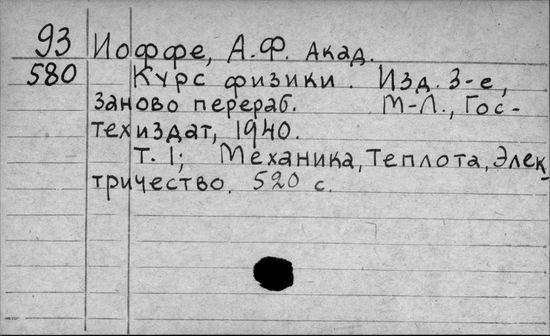 93 Иоффе, А.Ф. акад.
580 Курс физики. Изд. 3-е,
заново перераб. М-Л., Гос-
техиздат, 1940.
Т. 1; Механика, Теплота, Элек
тричество. 520 с.